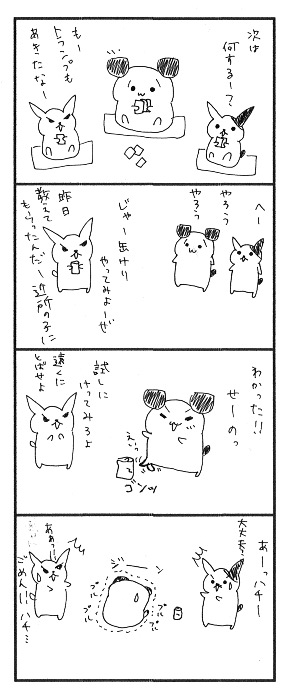 次は
何するー?
もー
トランプも
あきたなー
へー
やろう
やろう
じゃー缶けり
やってみよーぜ
昨日
教えて
もらったんだー近所の子に
わかった!!
せーのっ
えいっ
ゴンッ
試しに
けってみろよ
遠くに
とばせよ
あーっハチー
大丈夫?
ジーーン
プル
プル
プル
プル
プル
あぁっ!!
ごめん!!ハチ…